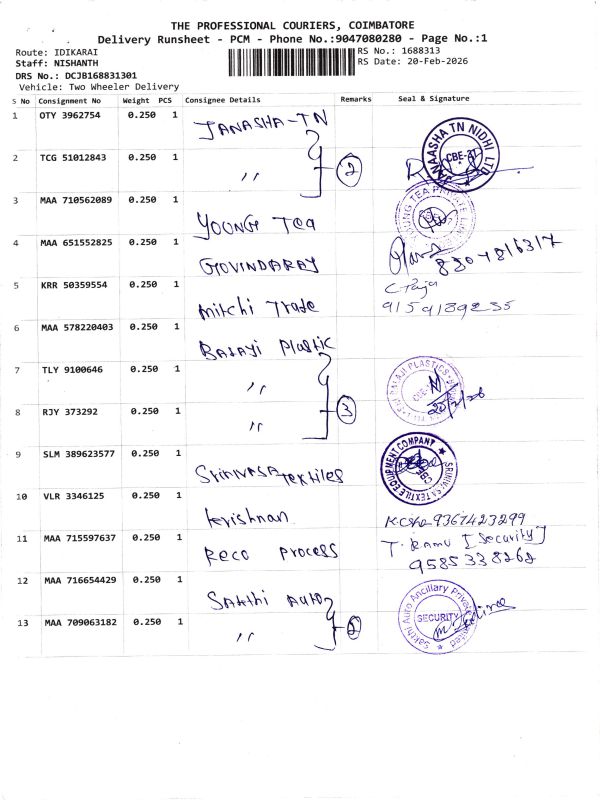 THE PROFESSIONAL COURIERS, COIMBATORE
Delivery Runsheet - PCM - Phone No.:9047080280 - Page No.:1
Route: IDIKARAI RS No.: 1688313
Staff: NISHANTH RS Date: 20-Feb-2026
DRS No.: DCJB168831301
Vehicle: Two Wheeler Delivery
S No Consignment No Weight PCS Consignee Details Remarks Seal & Signature
1 OTY 3962754 0.250 1 JANASHA-TN
2 TCG 51012843 0.250 1 〃 2 TN NIDHI LTD CBE-31
3 MAA 710562089 0.250 1 YOONG Tea
4 MAA 651552825 0.250 1 GOVINDARAJ 8307816317
5 KRR 50359554 0.250 1 mitchi Trade C Raja 9159189235
6 MAA 578220403 0.250 1 BALAJI Plastic
7 TLY 9100646 0.250 1 〃 BALAJI PLASTICS
8 RJY 373292 0.250 1 〃 3 20/2/26
9 SLM 389623577 0.250 1 Srinivasa textiles SRINIVASA TEXTILE EQUIPMENT COMPANY
10 VLR 3346125 0.250 1 krishnan 9367423299
11 MAA 715597637 0.250 1 Reco process T. Ramu [Security]
9585338268
12 MAA 716654429 0.250 1 Sakthi Auto
13 MAA 709063182 0.250 1 〃 2 Sakthi Auto Ancillary Private Limited SECURITY